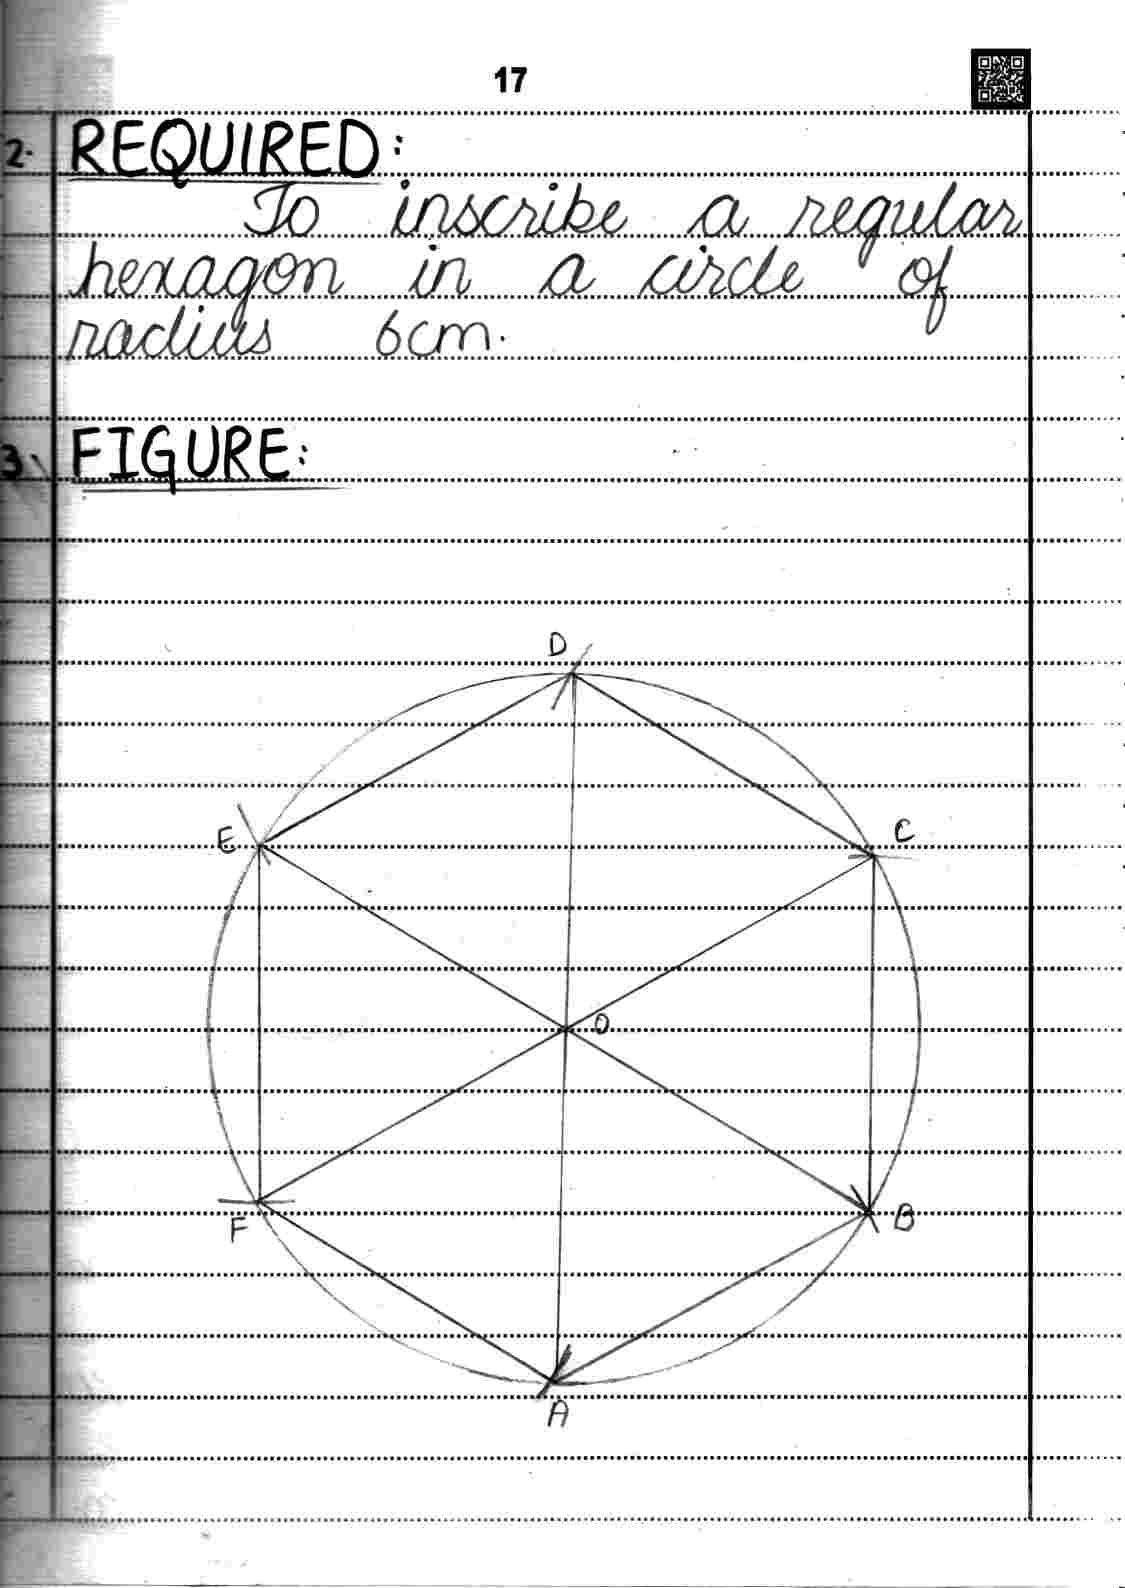 17
2. REQUIRED:
To inscribe a regular
hexagon in a circle of
radius 6cm.
3. FIGURE:
D
E
C
O
F
B
A